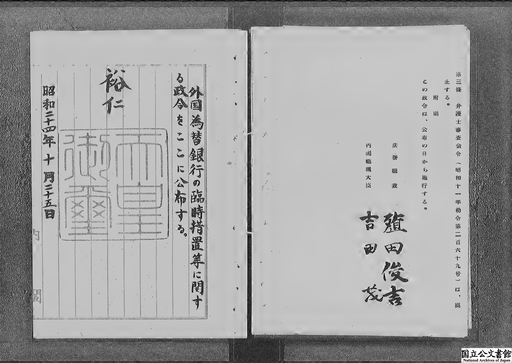 第三條　弁護士審査会令(昭和十一年勅令第二百六十九号)は、廃
止する。
附則
この政令は、公布の日から施行する。
法務総裁
殖田俊吉
内閣総理大臣
吉田茂
外国為替銀行の臨時措置等に関す
る政令をここに公布する。
裕仁
天皇
御璽
昭和二十四年十月二十五日
内閣
国立公文書館
National Archives of Japan